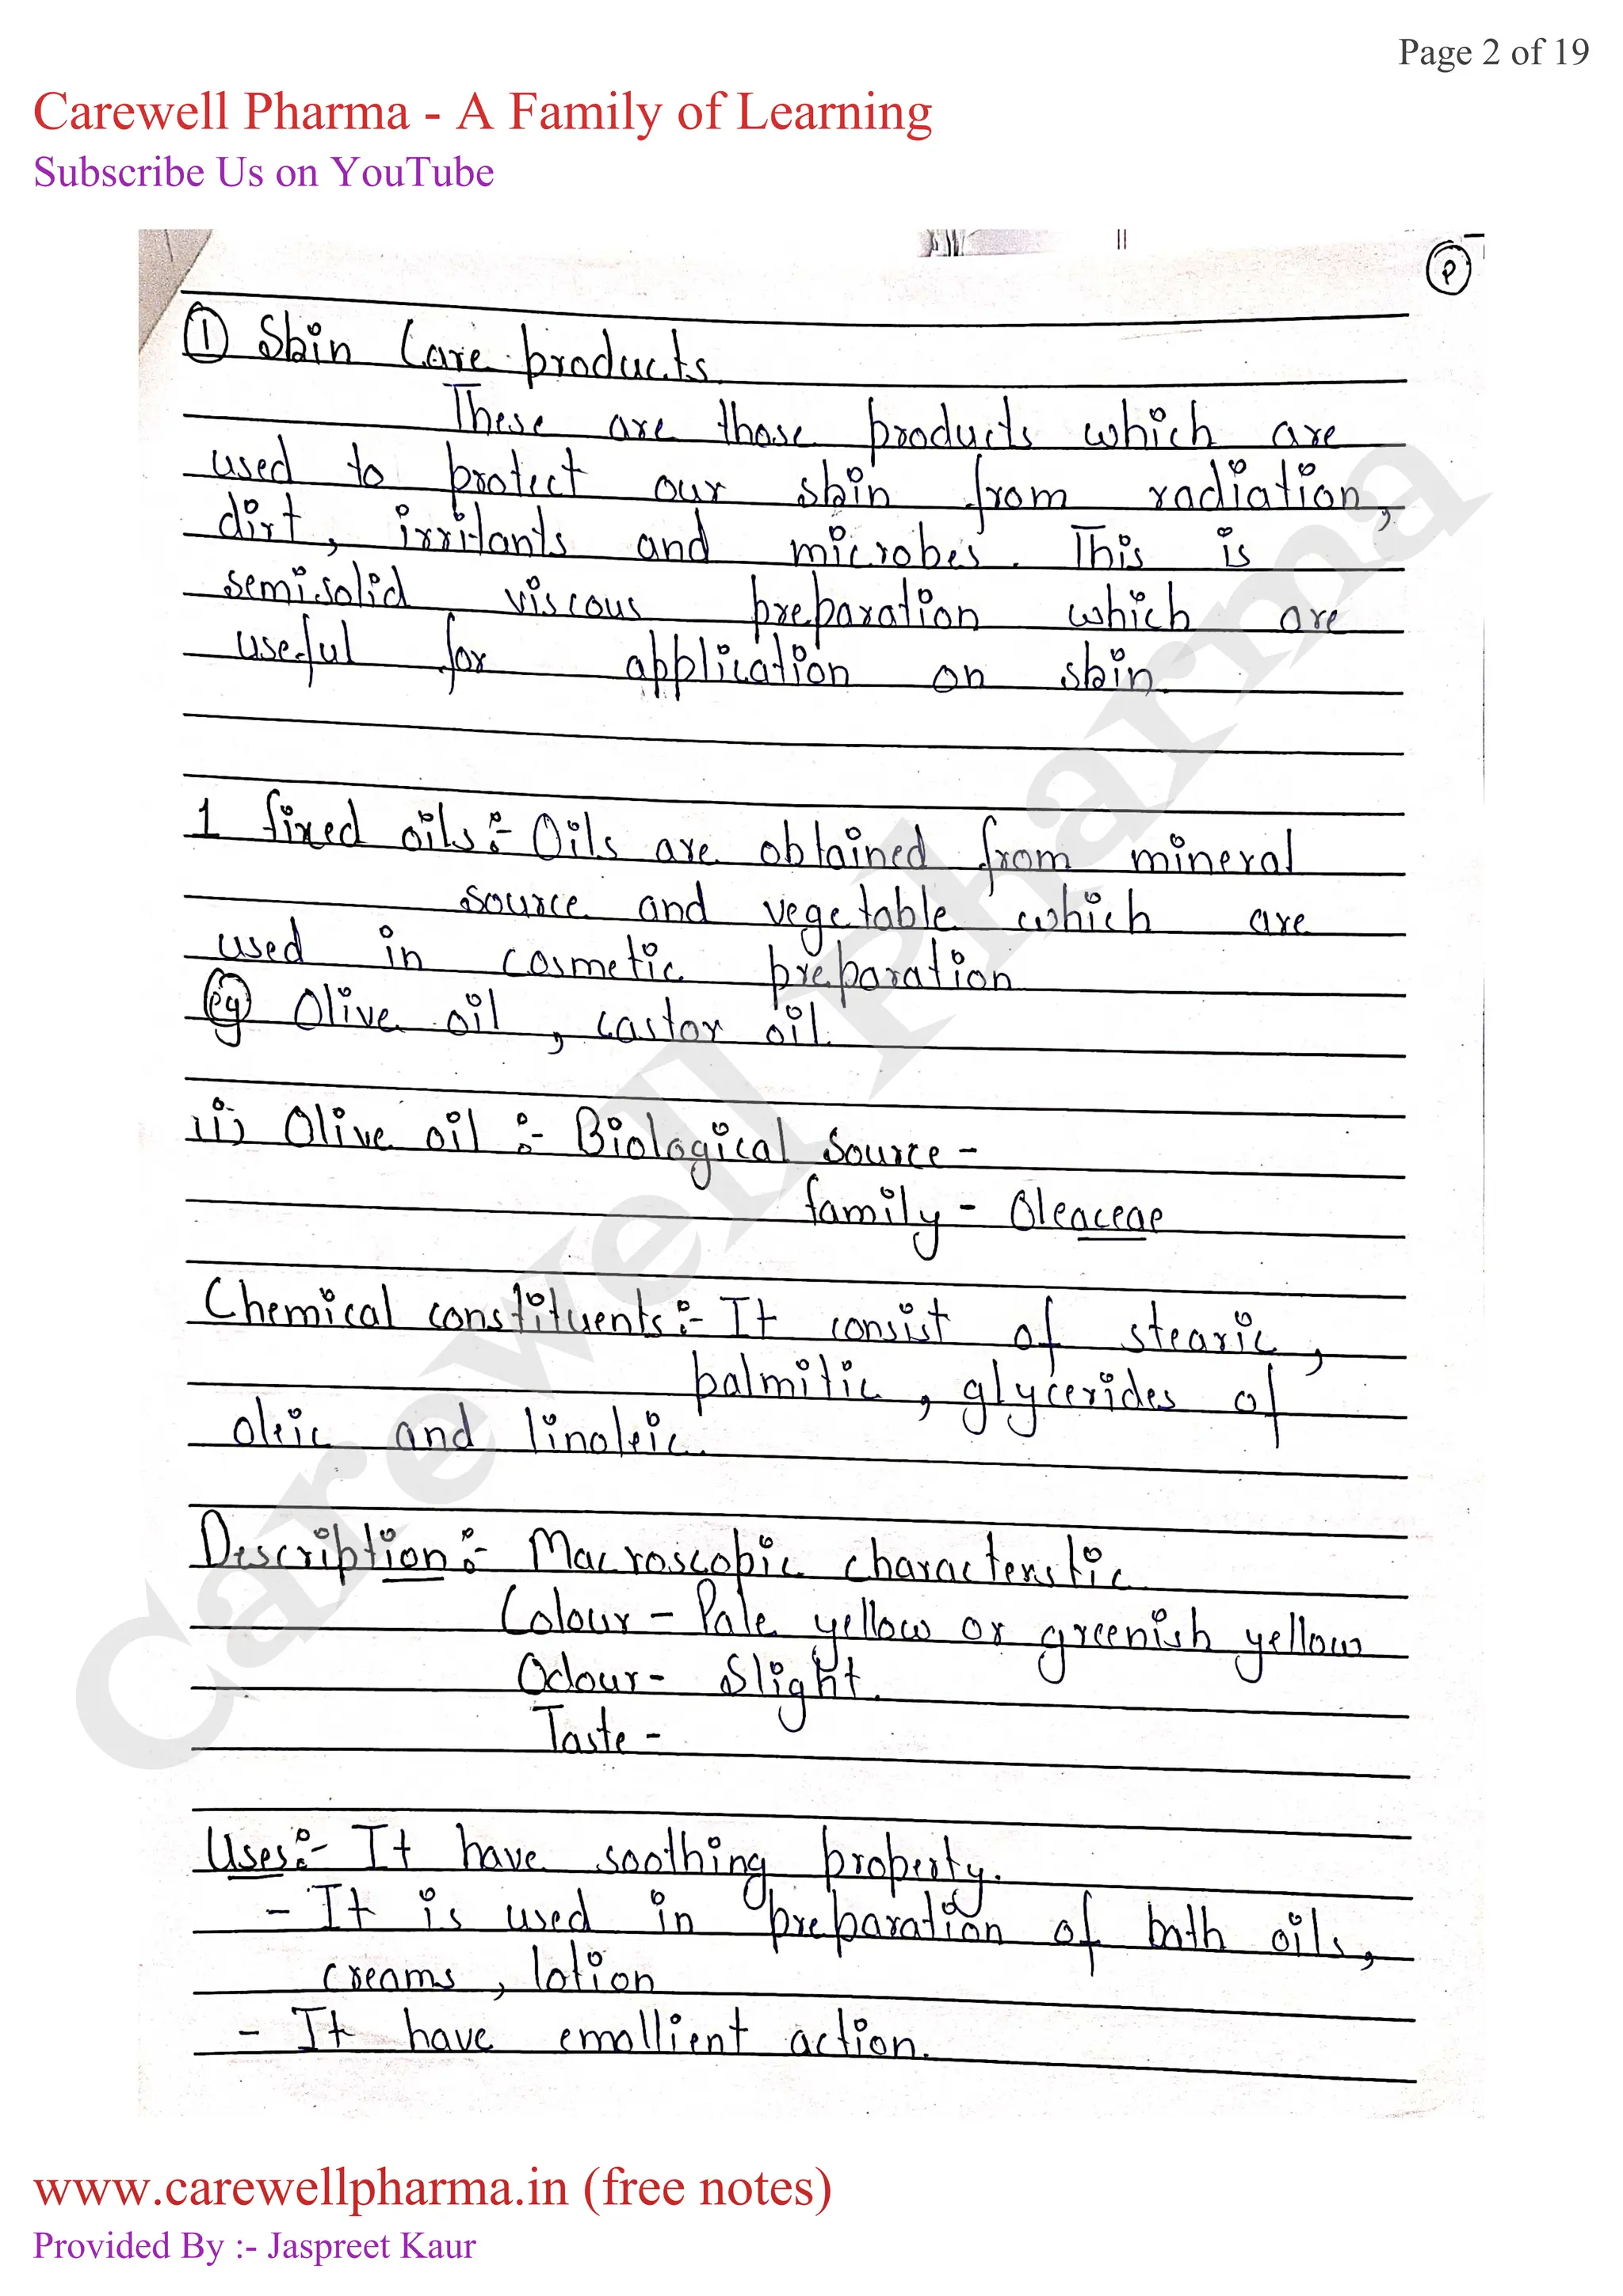 Page 2 of 19
Carewell Pharma - A Family of Learning
Subscribe Us on YouTube
P
① Skin Care products.
These are those products which are
used to protect our skin from radiation,
dirt, irritants and microbes. This is
semisolid viscous preparation which are
useful for application on skin.
1 fixed oils:- Oils are obtained from mineral
source and vegetable which are
used in cosmetic preparation
eg Olive oil, castor oil.
ii) Olive oil :- Biological Source -
family - Oleaceae
Chemical constituents:- It consist of stearic,
palmitic, glycerides of
oleic and linoleic.
Description:- Macroscopic characterstic
Colour - Pale yellow or greenish yellow
Odour - Slight.
Taste -
Uses:- It have soothing property.
- It is used in preparation of bath oils,
creams, lotion
- It have emollient action.
Carewell Pharma
www.carewellpharma.in (free notes)
Provided By :- Jaspreet Kaur